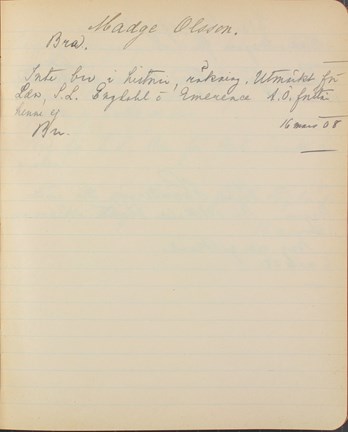 Madge Olsson.
Bra.
Inte bra i historia, räkning. Utmärkt för
S.L. Engdahl o Emerence
henne ej
Bra.
16 mars 08